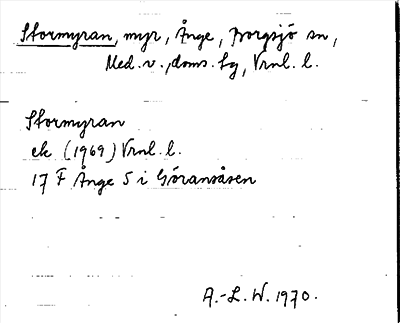 Stormyran, myr, Ånge, Borgsjö sn,
Med. v., doms. hg, Vrnl. l.
Stormyran
ek (1969) Vrnl. l.
17 F Ånge S i Göransåsen
A.-L. W. 1970.